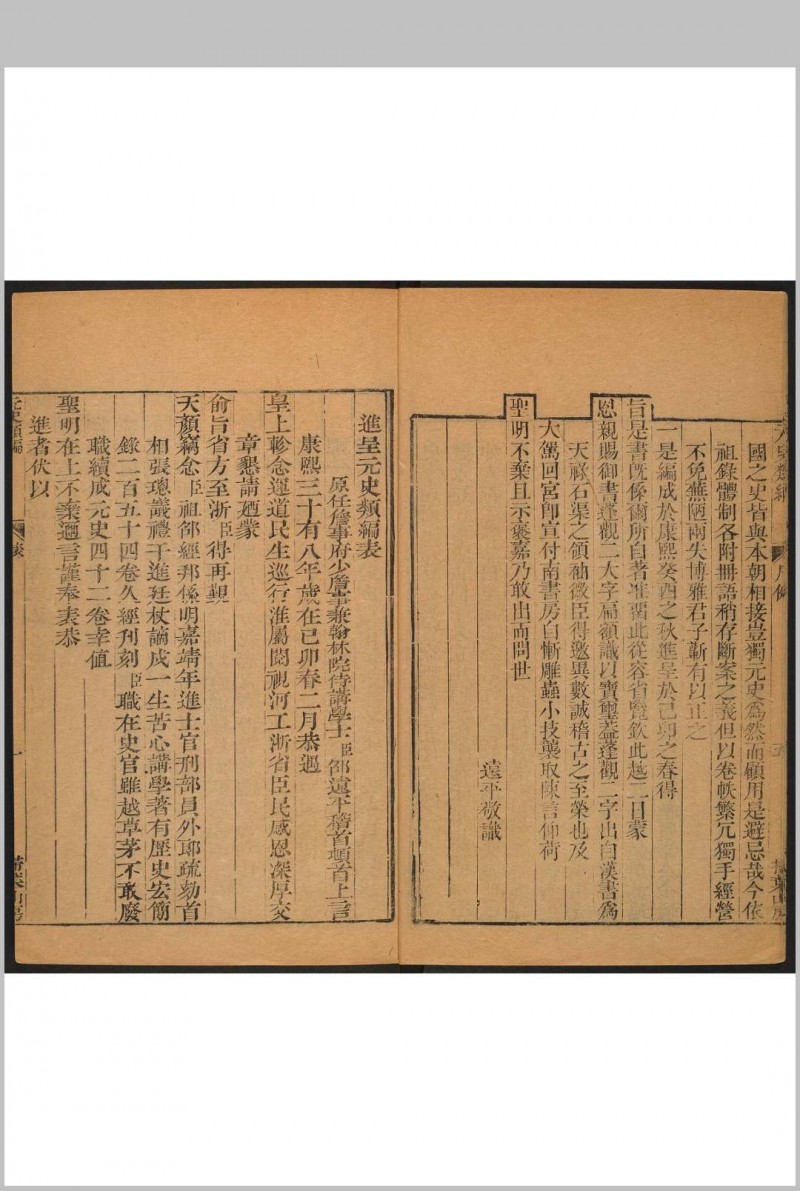 國之史皆與本朝相接豈獨元史爲然而顧用是避忌哉今依
祖錄體制各附冊語稍存斷案之義但以卷帙繁冗獨手經營
不免蕪陋兩失博雅君子蘄有以正之
一是編成於康熙癸酉之秋進呈於己卯之春得
旨是書旣係爾所自著准留此從容省覽欽此越二日蒙
恩親賜御書蓬觀二大字扁額識以寶璽蓋蓬觀二字出自漢書爲
天祿石渠之領袖微臣得邀異數誠稽古之至榮也及
大駕回宮卽宣付南書房自慚雕蟲小技襲取陳言仰荷
聖明不棄且示褒嘉乃敢出而問世
遠平敬識
進呈元史類編表
原任詹事府少詹事兼翰林院侍講學士臣邵遠平稽首頓首上言
康熙三十有八年歲在己卯春二月恭遇
皇上軫念運道民生巡行淮屬閱視河工浙省臣民感恩深厚交
章懇請廼蒙
俞旨省方至浙臣得再覲
天顏竊念臣祖邵經邦係明嘉靖年進士官刑部員外郎疏劾首
相張璁議禮于進廷杖謫戍一生苦心講學著有歷史宏簡
錄二百五十四卷久經刊刻臣職在史官雖越草茅不敢廢
職續成元史四十二卷幸值
聖明在上不棄邇言謹奉表恭
進者伏以
元史類編
表
一